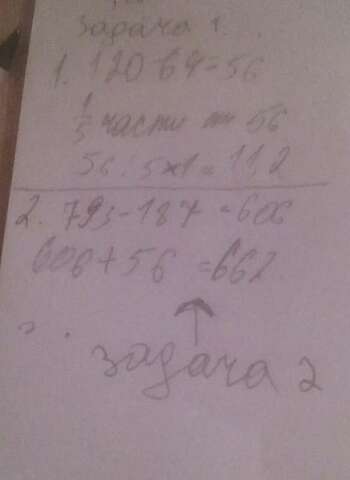 задача 1.
1. 120 64=56
1/5 части от 56
56:5×1=112
2. 793-187=606
606+56=662
задача 2